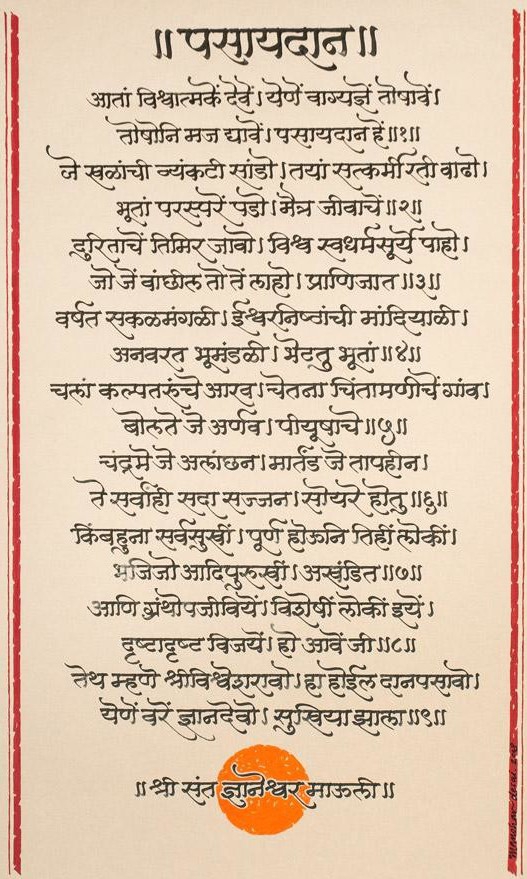 ॥ पसायदान ॥
आतां विश्वात्मकें देवें। येणें वाग्यज्ञें तोषावें।
तोषोनि मज द्यावें। पसायदान हें॥१॥
जे खळांची व्यंकटी सांडो। तयां सत्कर्मीं रती वाढो।
भूतां परस्परें पडो। मैत्र जीवाचें॥२॥
दुरिताचें तिमिर जावो। विश्व स्वधर्मसूर्यें पाहो।
जो जें वांछील तो तें लाहो। प्राणिजात॥३॥
वर्षत सकळमंगळी। ईश्वरनिष्ठांची मांदियाळी।
अनवरत भूमंडळी। भेटतु भूतां॥४॥
चलां कल्पतरुंचे आरव। चेतना चिंतामणीचें गांव।
बोलते जे अर्णव। पीयूषाचे॥५॥
चंद्रमे जे अलांछन। मार्तंड जे तापहीन।
ते सर्वांही सदा सज्जन। सोयरे होतु॥६॥
किंबहुना सर्वसुखीं। पूर्ण होऊनि तिहीं लोकीं।
भजिजो आदिपुरुखीं। अखंडित॥७॥
आणि ग्रंथोपजीवियें। विशेषीं लोकीं इयें।
दृष्टादृष्ट विजयें। हो आवें जी॥८॥
तेथ म्हणे श्रीविश्वेशरावो। हा होईल दानपसावो।
येणें वरें ज्ञानदेवो। सुखिया झाला॥९॥
॥ श्री संत ज्ञानेश्वर माऊली॥